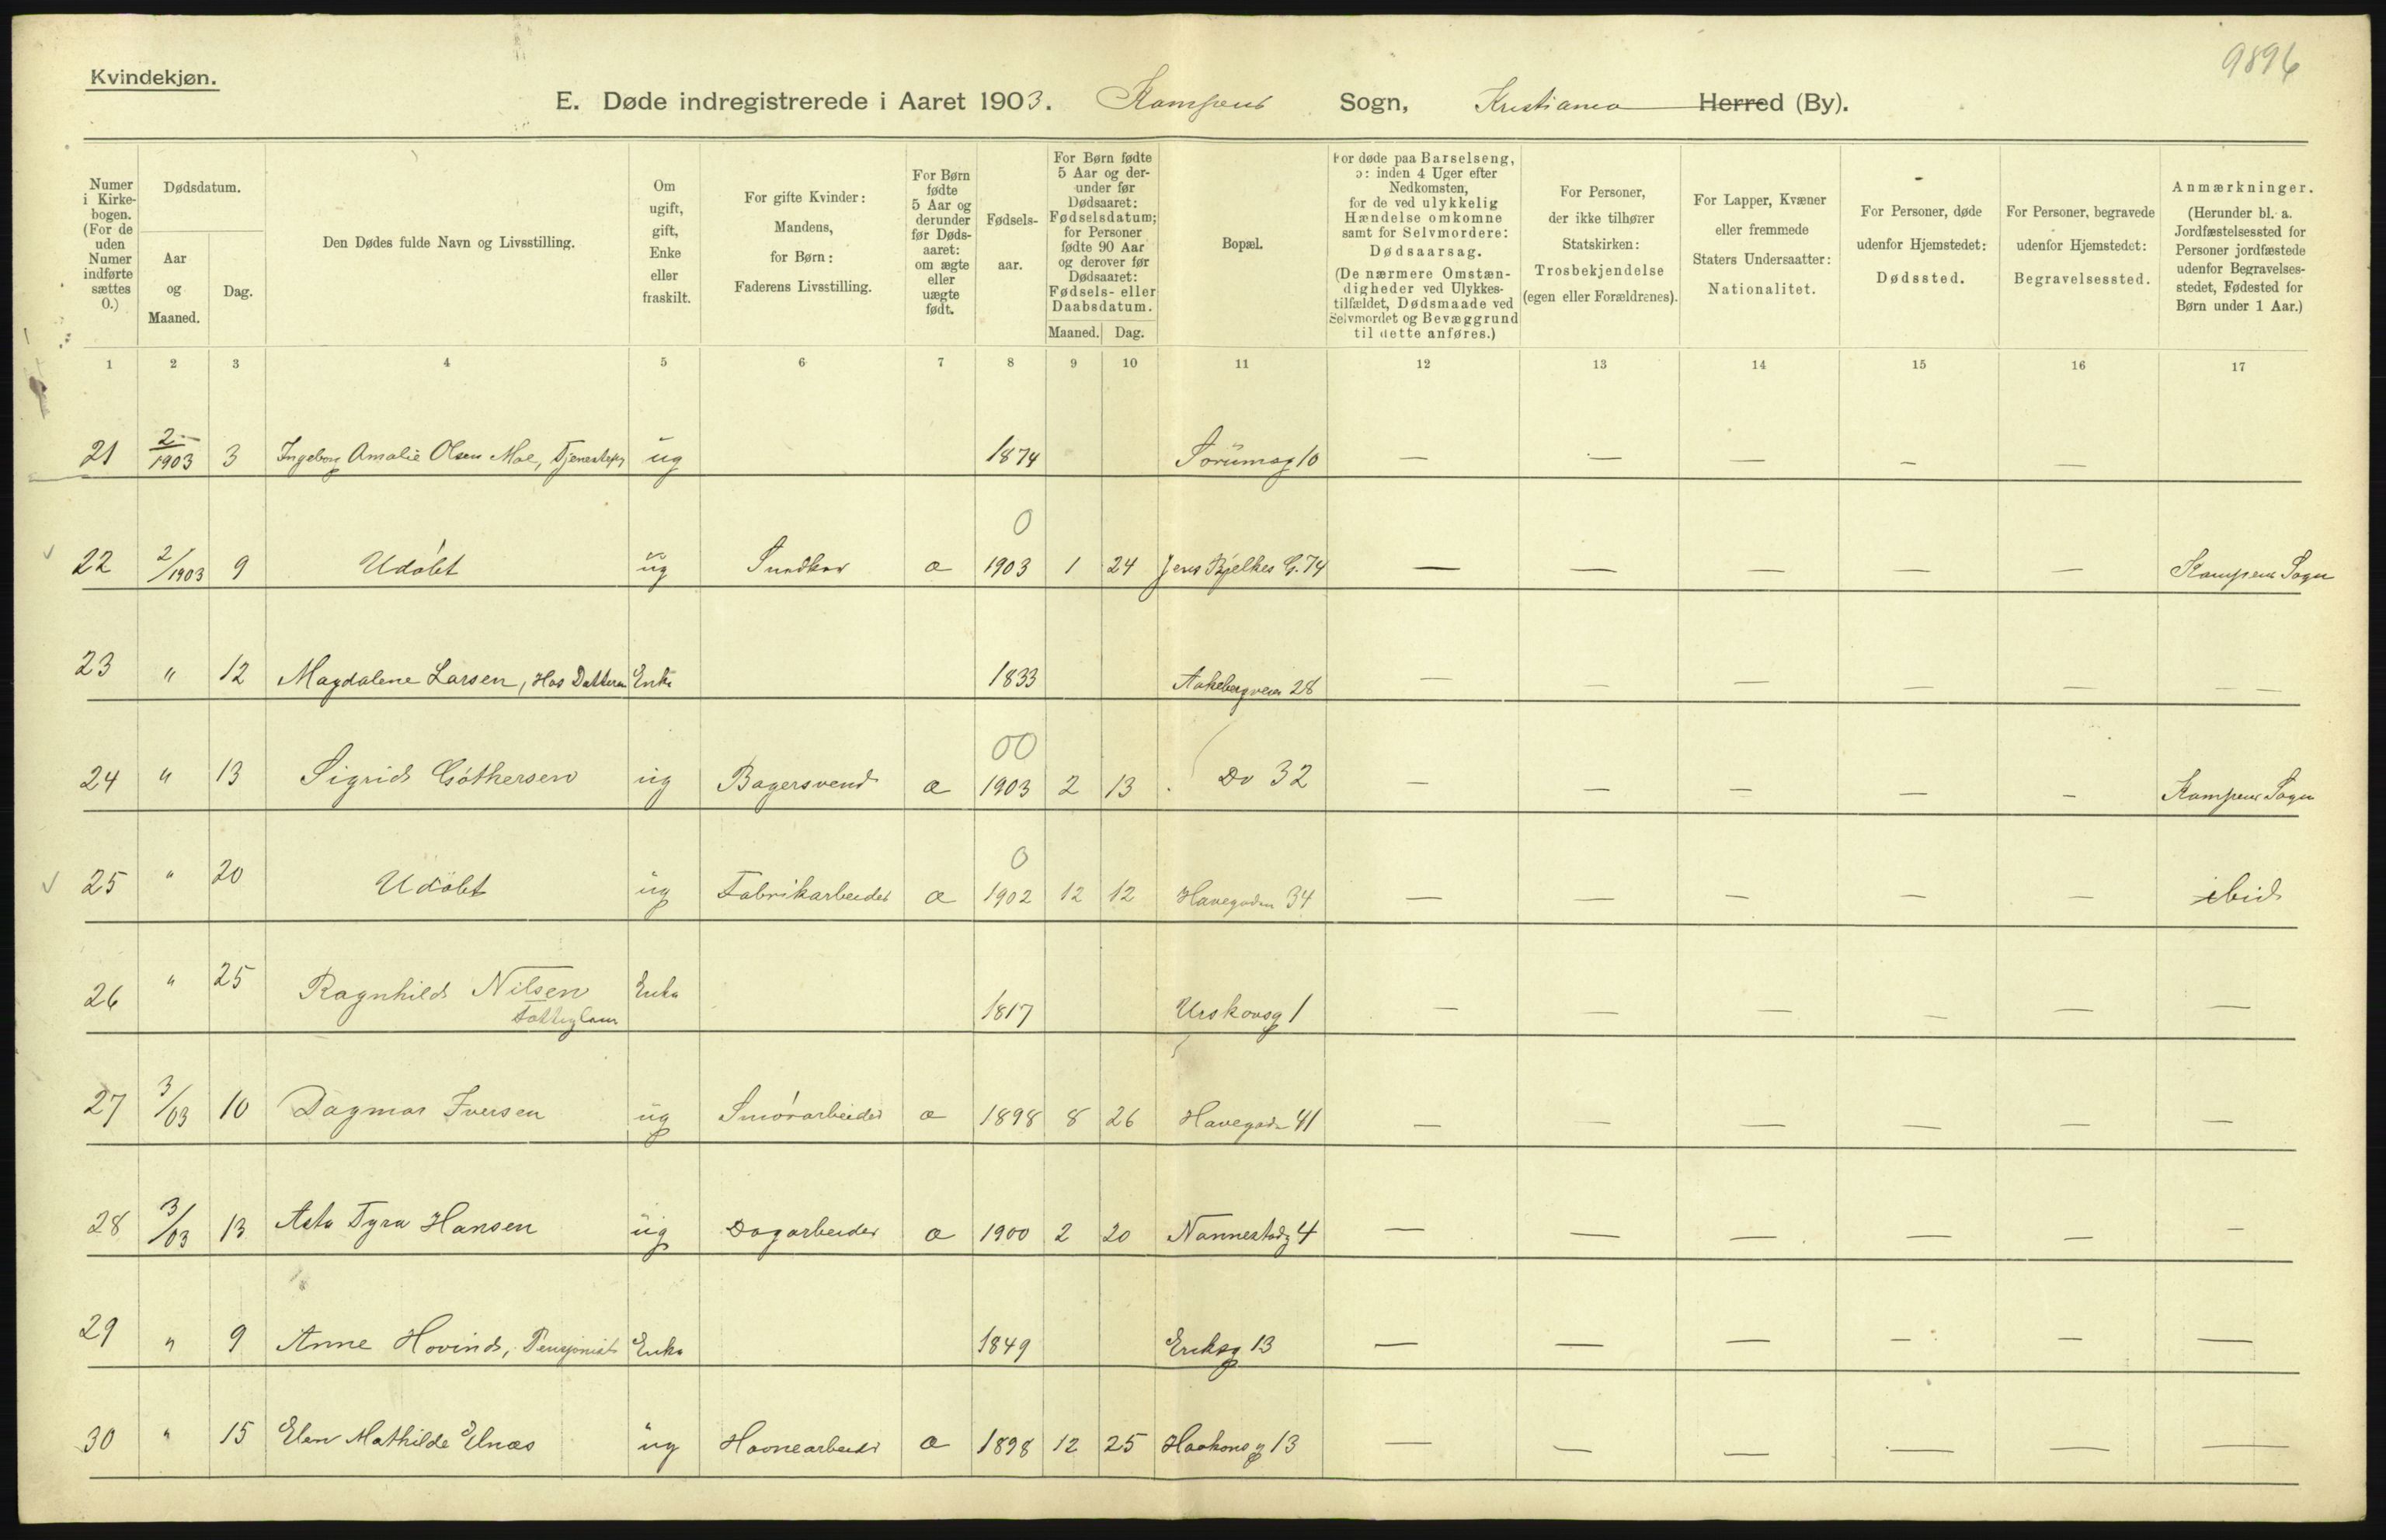 9896
Kvindekjøn.
E. Døde indregistrerede i Aaret 1903. Kampens Sogn, Kristiania Herred (By).
Numer i Kirke-bogen. (For de uden Numer indførte sættes 0.)
Dødsdatum.
Aar og Maaned.
Dag.
Den Dødes fulde Navn og Livsstilling.
Om ugift, gift, Enke eller fraskilt.
For gifte Kvinder: Mandens, for Børn: Faderens Livsstilling.
For Børn fødte 5 Aar og derunder før Døds-aaret: om ægte eller uægte født.
Fødsels-aar.
For Børn fødte 5 Aar og der-under før Dødsaaret: Fødselsdatum; for Personer fødte 90 Aar og derover før Dødsaaret: Fødsels- eller Daabsdatum.
Maaned. Dag.
Bopæl.
For døde paa Barselseng, ɔ: inden 4 Uger efter Nedkomsten, for de ved ulykkelig Hændelse omkomne samt for Selvmordere: Dødsaarsag. (De nærmere Omstæn-digheder ved Ulykkes-tilfældet, Dødsmaade ved Selvmordet og Bevæggrund til dette anføres.)
For Personer, der ikke tilhører Statskirken: Trosbekjendelse (egen eller Forældrenes).
For Lapper, Kvæner eller fremmede Staters Undersaatter: Nationalitet.
For Personer, døde udenfor Hjemstedet: Dødssted.
For Personer, begravede udenfor Hjemstedet: Begravelsessted.
Anmærkninger. (Herunder bl. a. Jordfæstelsessted for Personer jordfæstede udenfor Begravelses-stedet, Fødested for Børn under 1 Aar.)
1 2 3 4 5 6 7 8 9 10 11 12 13 14 15 16 17
21 2/1903 3 Ingeborg Amalie Olsen Moe, ug 1874 Sørumsg 10 — — — — —
0
22 2/1903 9 Udøbt ug æ 1903 1 24 Jens Bjelkes G. 74 — — — — — Kampens Sogn
23 " 12 Magdalene Larsen, Hos Datteren Enke 1833 Aakebergveien 28 — — — — — — —
00
24 " 13 Sigrid Gøthersen ug Bagersvend æ 1903 2 13 Do 32 — — — — — Kampens Sogn
0
25 " 20 Udøbt ug Fabrikarbeider æ 1902 12 12 Havegaden 34 — — — — — ibid
26 " 25 Ragnhild Nilsen Enke 1817 Urskovsg 1 — — — — — —
27 3/03 10 Dagmar Iversen ug æ 1898 8 26 Havegaden 41 — — — — — —
28 3/03 13 Asta Tyra Hansen ug Dagarbeider æ 1900 2 20 Nannestadg 4 — — — — — —
29 " 9 Anne Hovind, Pensjonist Enke 1849 Eriksg 13 — — — — — —
30 " 15 Elen Mathilde Elnæs ug Havnearbeider æ 1898 12 25 Haakonsg 13 — — — — — —